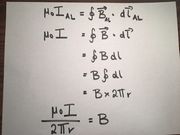 μ₀I_AL = ∮B⃗_AL · dl⃗_AL
μ₀I = ∮B⃗ · dl⃗
= ∮B dl
= B∮dl
= B × 2πr
μ₀I / 2πr = B